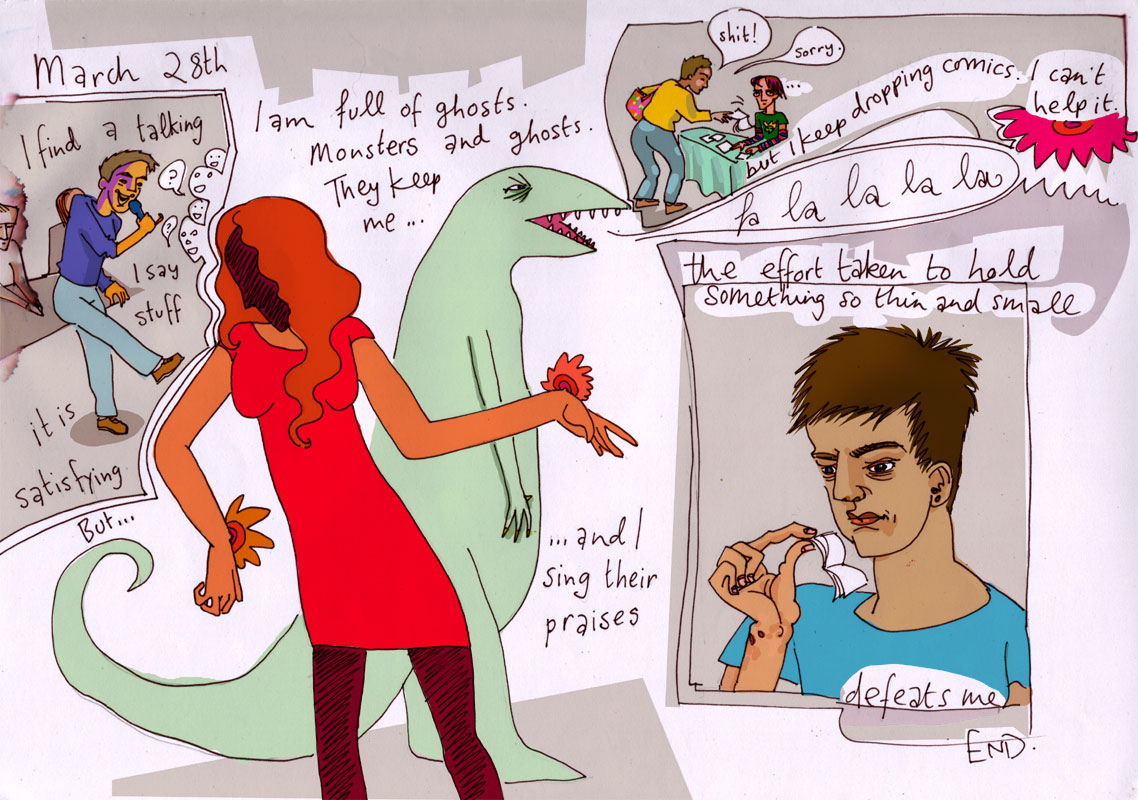 March 28th
I find a talking
?
?
I say
stuff
it is
satisfying
But...
I am full of ghosts.
Monsters and ghosts.
They keep
me ...
... and I
sing their
praises
shit!
Sorry.
...
but I keep dropping comics.
I can't
help it.
la la la la
the effort taken to hold
something so thin and small
defeats me
END.